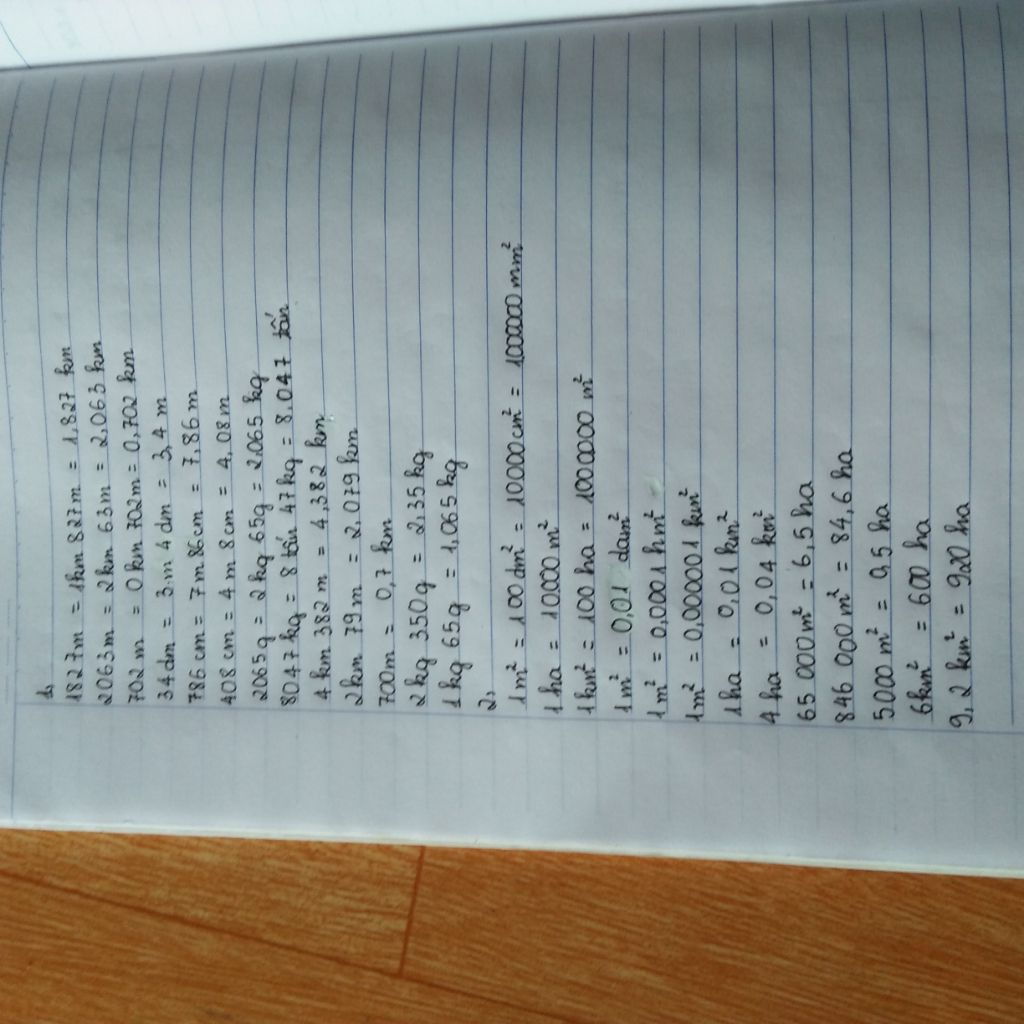 1,
1827m = 1km 827m = 1,827 km
2063m = 2km 63m = 2,063 km
702 m = 0 km 702m = 0,702 km
34dm = 3 m 4 dm = 3,4 m
786 cm = 7 m 86cm = 7,86 m
408 cm = 4 m 8 cm = 4,08 m
2065 g = 2 kg 65g = 2,065 kg
8047 kg = 8 tấn 47kg = 8,047 tấn
4 km 382 m = 4,382 km
2 km 79 m = 2,079 km
700m = 0,7 km
2 kg 350 g = 2,35 kg
1 kg 65 g = 1,065 kg
2,
1m² = 100 dm² = 10000cm² = 1000000 mm²
1 ha = 10000 m²
1 km² = 100 ha = 1000000 m²
1 m² = 0,01 dam²
1 m² = 0,0001 hm²
1m² = 0,000001 km²
1 ha = 0,01 km²
4 ha = 0,04 km²
65 000 m² = 6,5 ha
846 000 m² = 84,6 ha
5000 m² = 0,5 ha
6km² = 600 ha
9,2 km² = 920 ha